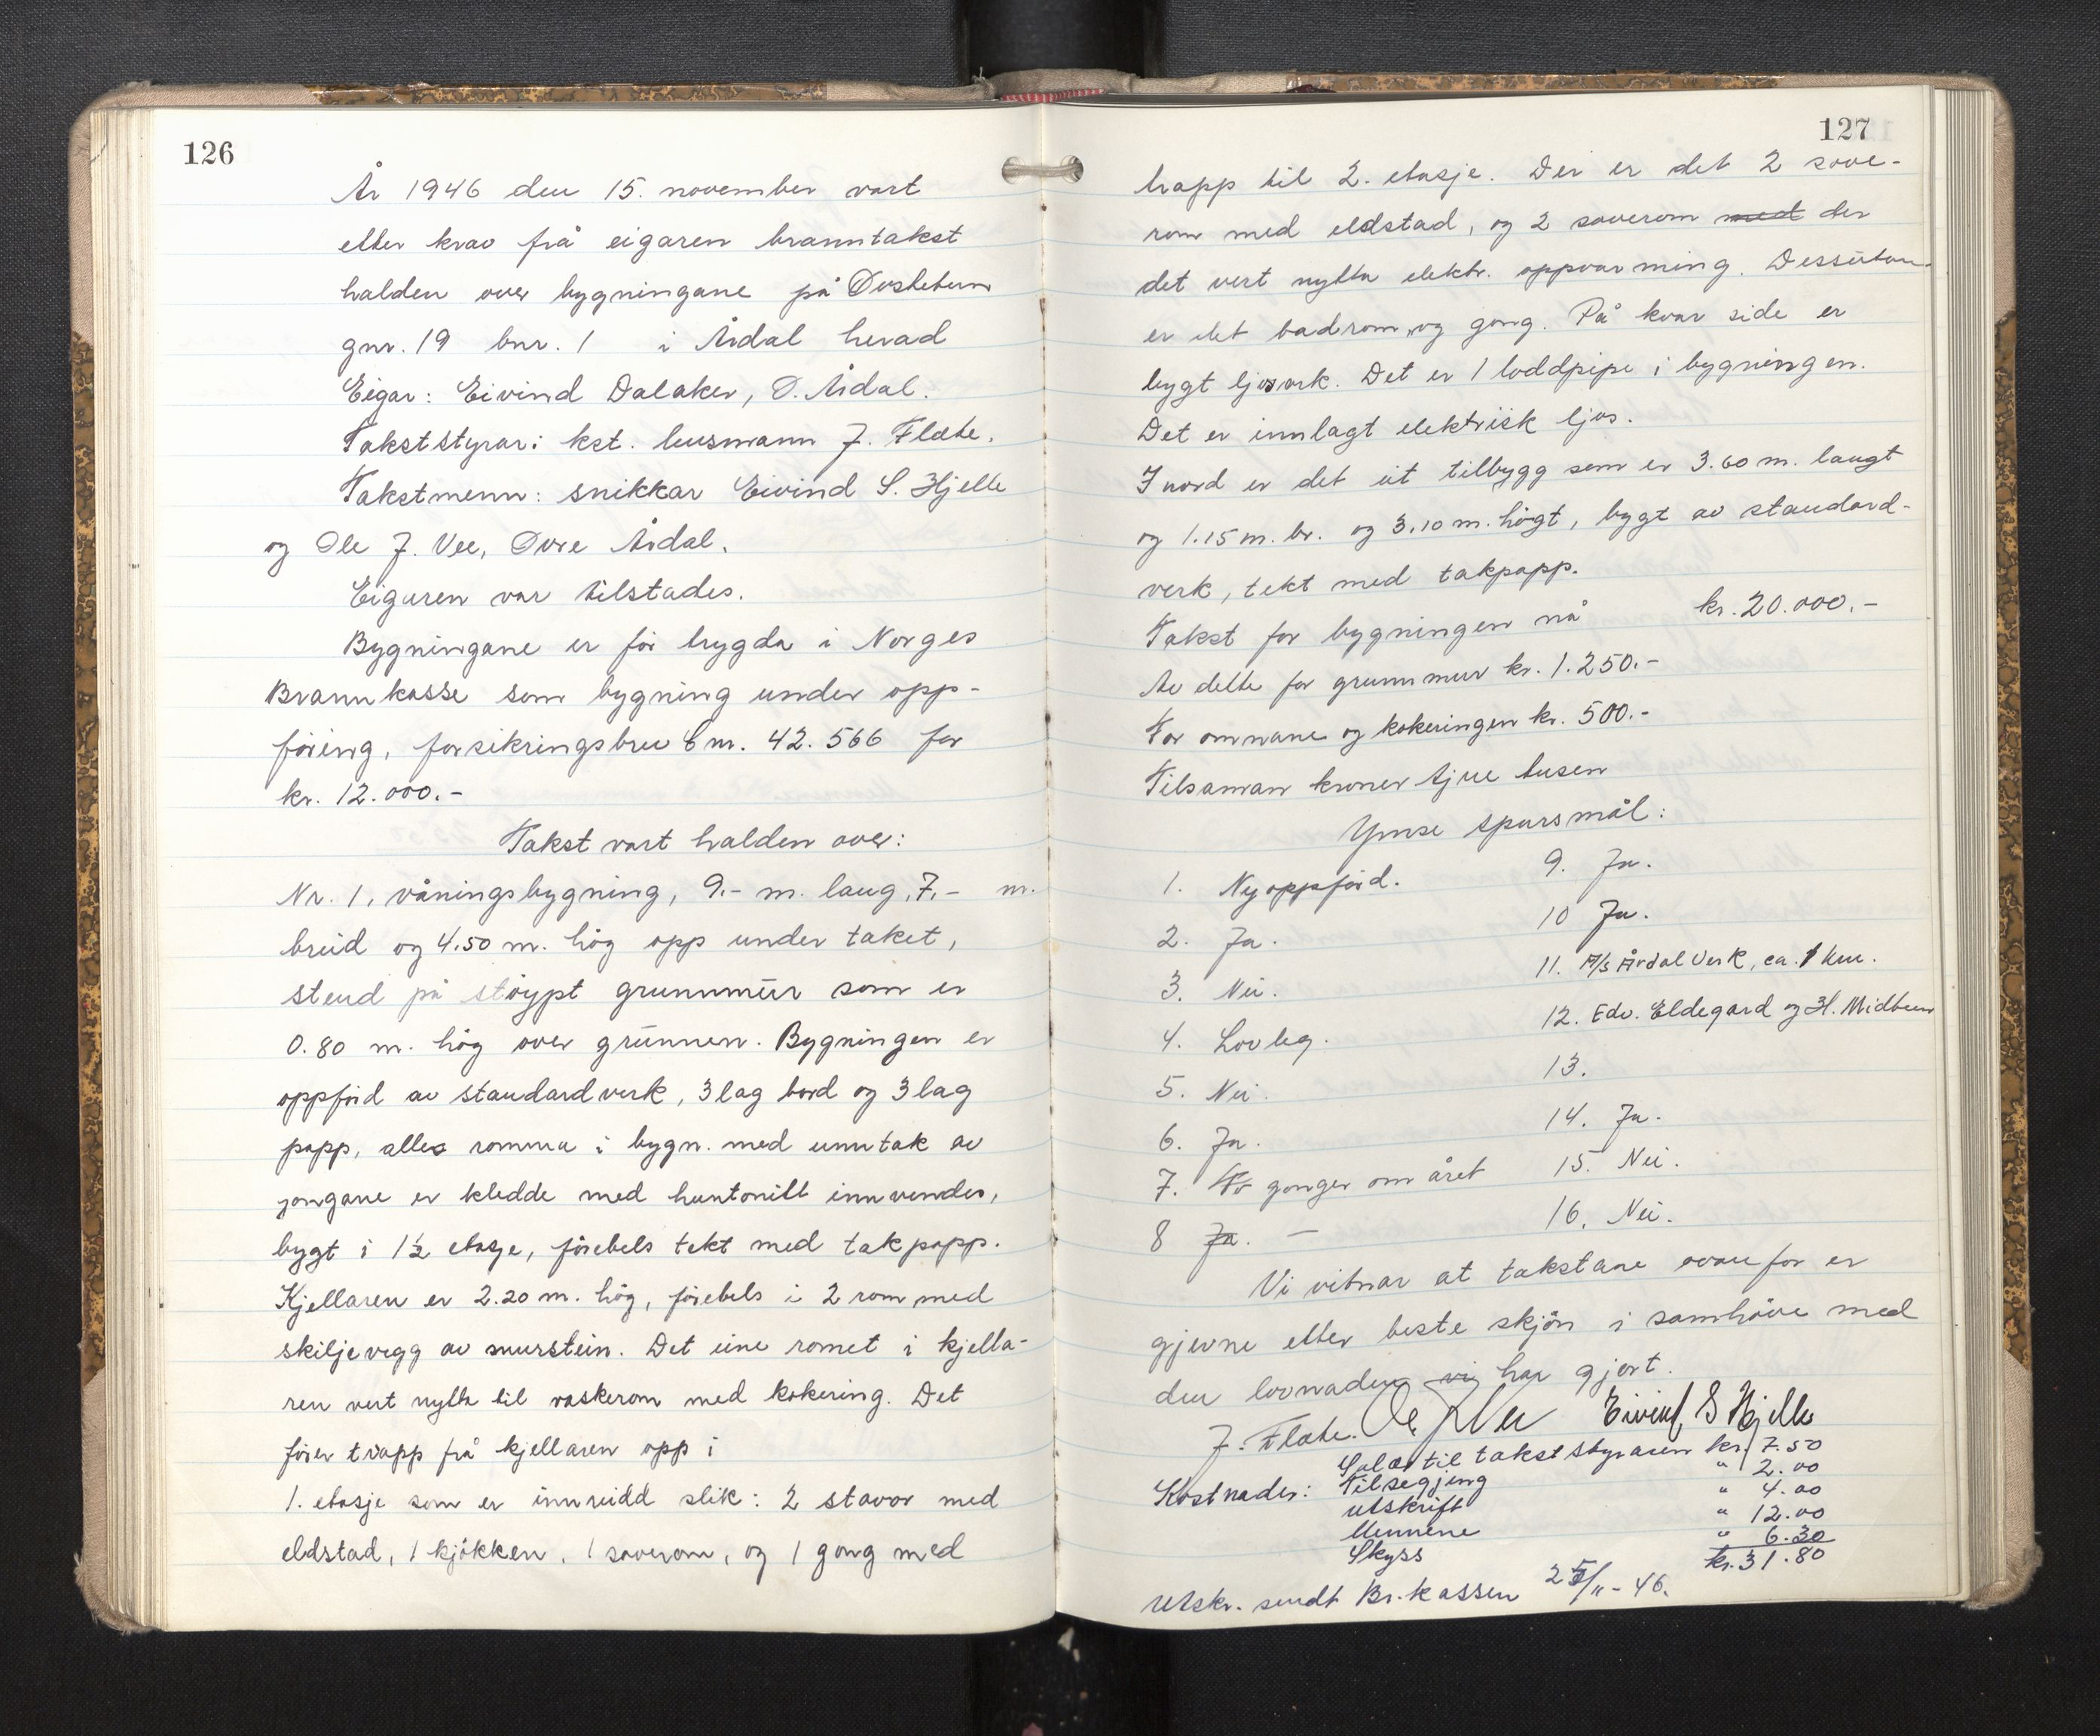 126
År 1946 den 15. november vart
etter krav frå eigaren branntakst
halden over bygningane på
gnr. 19 bnr. 1 i Årdal herad
Eigar: Eivind Dalaker, Ø. Årdal.
Takststyrar: kst. lensmann J. Flæte.
Takstmenn: snikkar Eivind S. Hjelle
og Ole J. Vee, Øvre Årdal.
Eigaren var tilstades.
Bygningane er før trygda i Norges
Brannkasse som bygning under opp-
føring, forsikringsbrev nr. 42.566 for
kr. 12.000.-
Takst vart halden over:
Nr. 1, våningsbygning, 9.- m. lang, 7.- m.
breid og 4.50 m. høg opp under taket,
stend på støypt grunnmur som er
0.80 m. høg over grunnen. Bygningen er
oppførd av standardverk, 3 lag bord og 3 lag
papp, alle romma i bygn. med unntak av
gongane er kledde med huntonitt innvendes,
bygt i 1½ etasje, førebels tekt med takpapp.
Kjellaren er 2.20 m. høg, førebels i 2 rom med
skiljevegg av murstein. Det eine romet i kjella-
ren vert nytta til vaskerom med kokering. Det
fører trapp frå kjellaren opp i
1. etasje som er innreidd slik: 2 stovor med
eldstad, 1 kjøkken, 1 soverom, og 1 gong med
127
trapp til 2. etasje. Der er det 2 sove-
rom med eldstad, og 2 soverom med der
det vert nytta elektr. oppvarming. Dessutan
er det badrom og gong. På kvar side er
bygt ljosark. Det er 1 loddpipe i bygningen.
Det er innlagt elektrisk ljos.
I nord er det eit tilbygg som er 3.60 m. langt
og 1.15 m. br. og 3.10 m. høgt, bygt av standard-
verk, tekt med takpapp.
Takst for bygningen nå kr. 20.000.-
Av dette for grunnmur kr. 1.250.-
For omnane og kokeringen kr. 500.-
Tilsaman kroner tjue tusen
Ymse spursmål:
1. Nyoppførd.
2. Ja.
3. Nei.
4. Lovleg.
5. Nei.
6. Ja.
7. To gonger om året
8 Ja. –
9. Ja.
10 Ja.
11. A/S Årdal Verk, ca. 1 km.
12. Edv. Eldegard og H. Midtun
13.
14. Ja.
15. Nei.
16. Nei.
Vi vitnar at takstane ovanfor er
gjevne etter beste skjøn i samhøve med
den lovnaden vi har gjort.
J. Flæte. Ole J Vee Eivind S Hjelle
Kostnader: Salær til takststyraren kr. 7.50
Tilsegjing " 2.00
Utskrift " 4.00
Mennene " 12.00
Skyss " 6.30
kr. 31.80
Utskr. sendt Br.kassen 25/11-46.